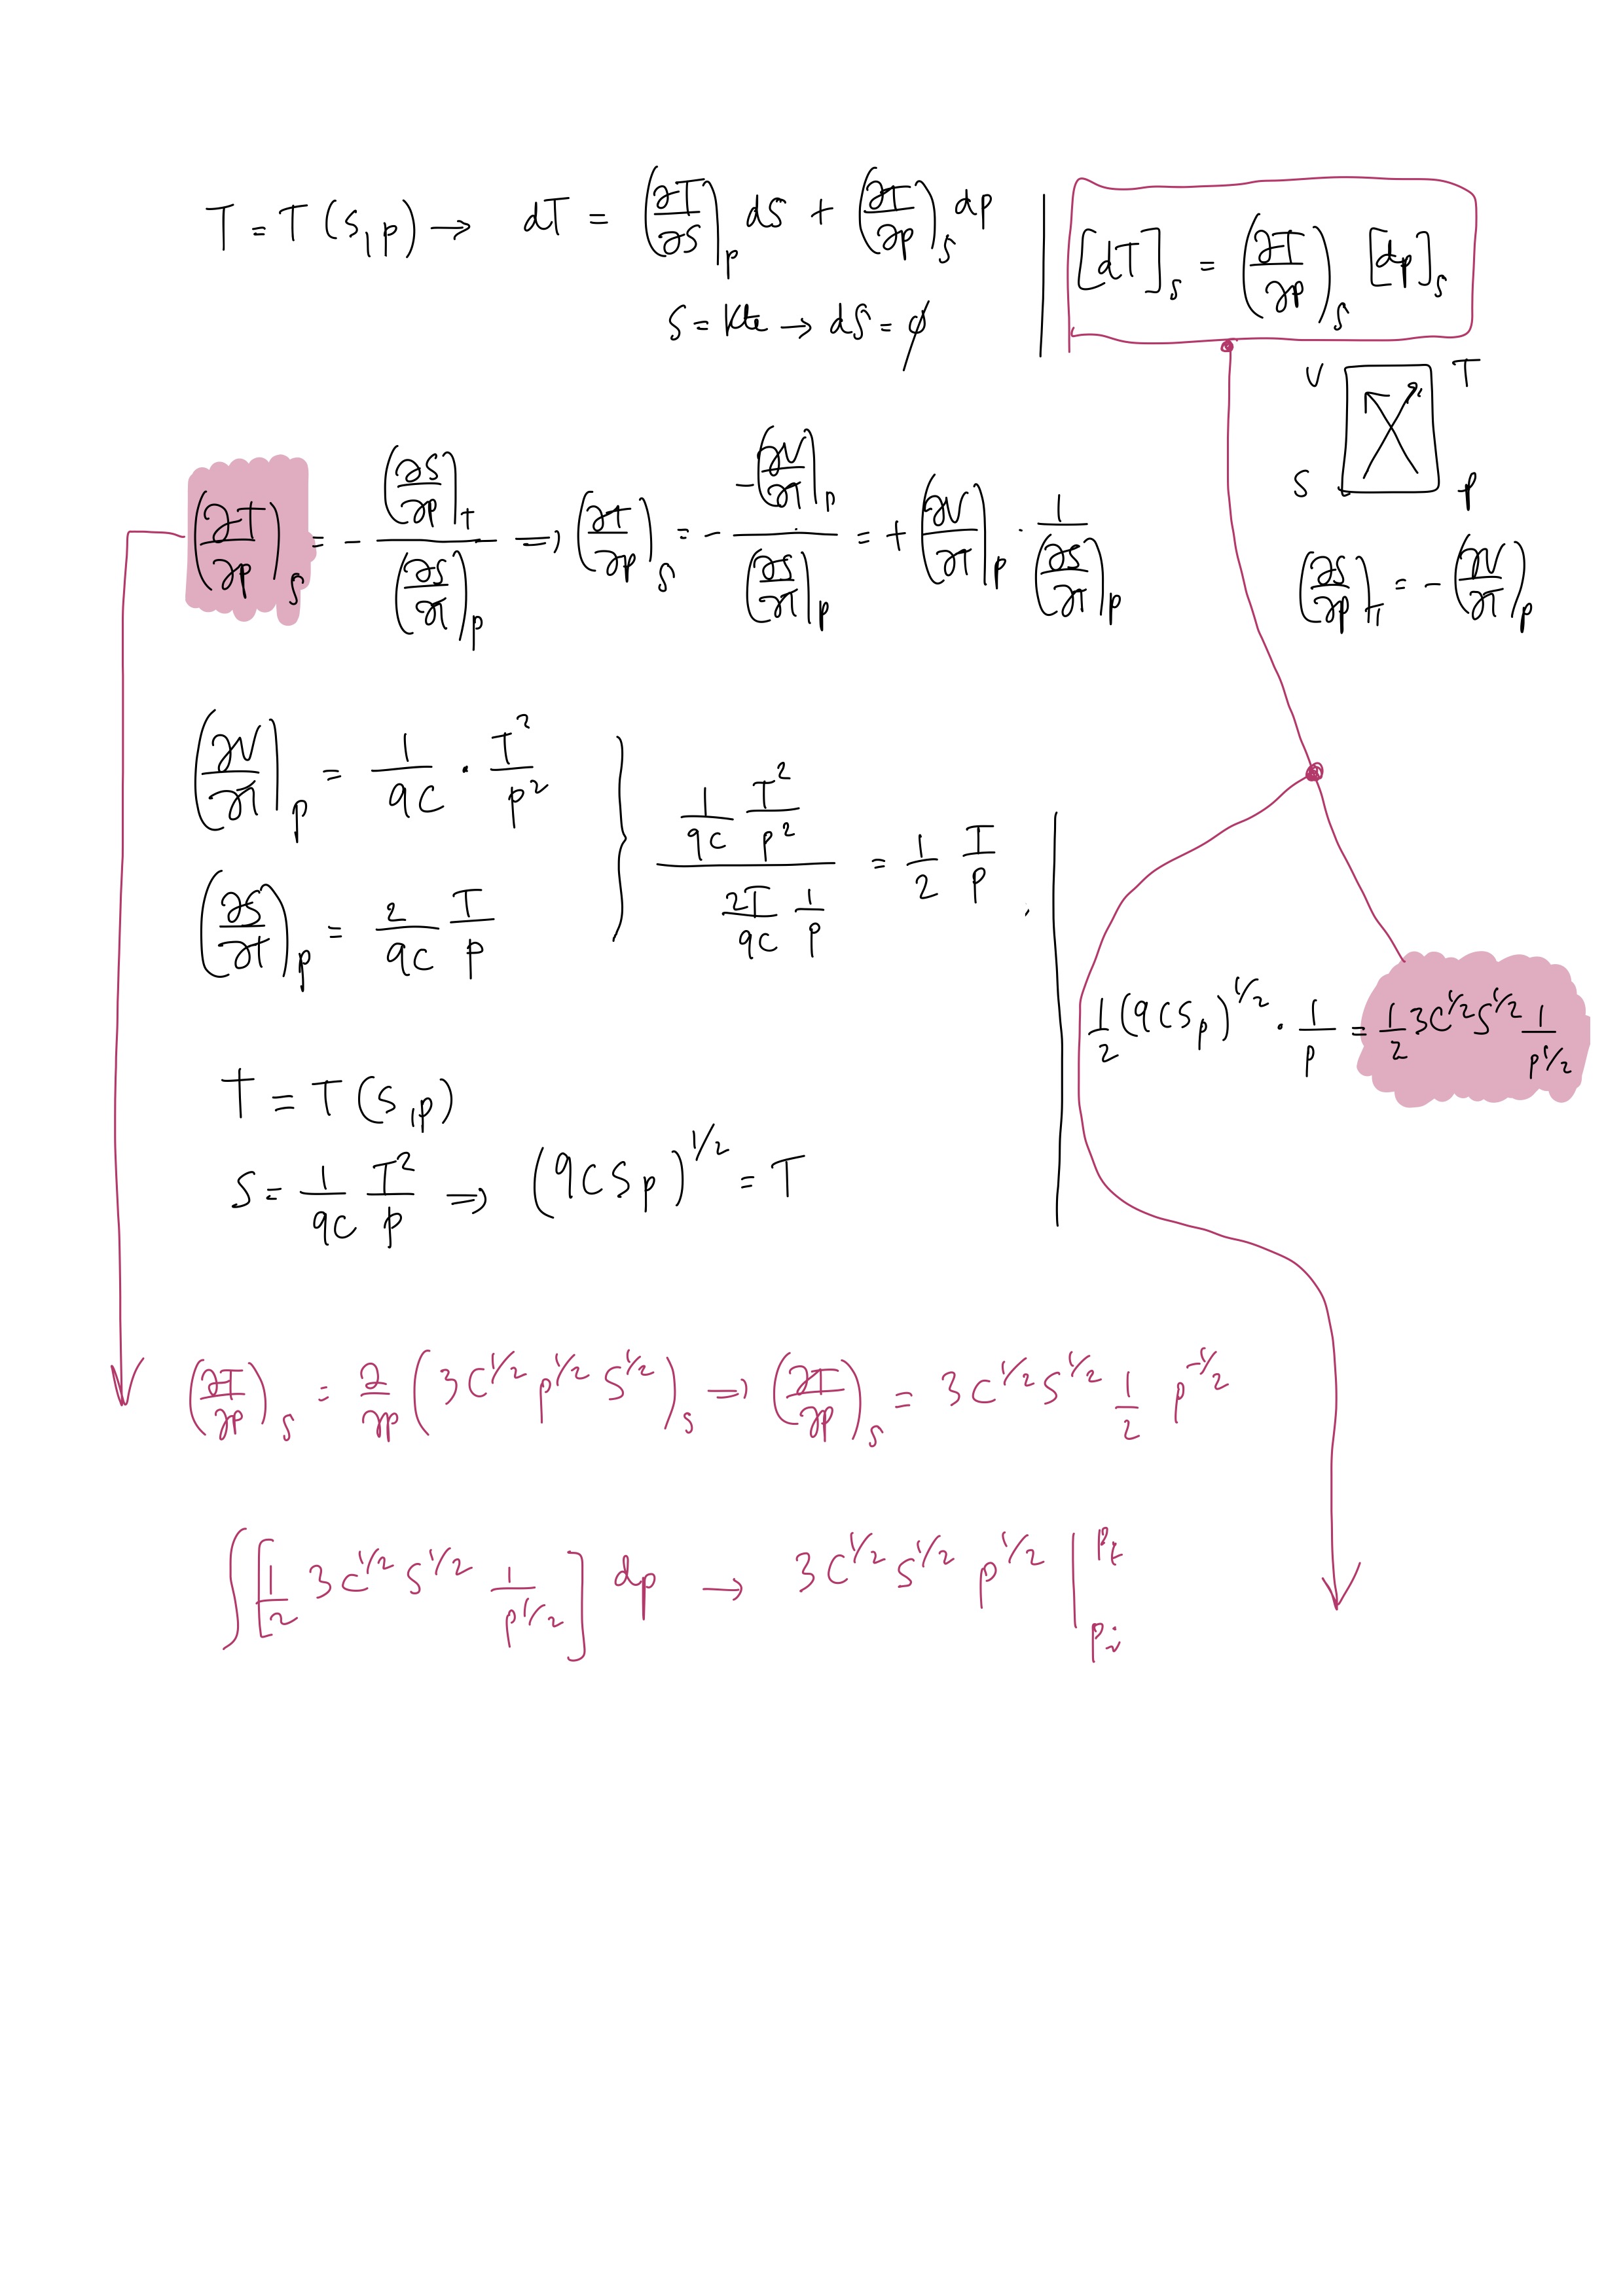 T = T(S,p) → dT = (∂T/∂S)_p dS + (∂T/∂p)_S dp | [dT]_S = (∂T/∂p)_S [dp]_S
S = kte → dS = ∅
V T
S p
(∂T/∂p)_S = - (∂S/∂p)_T / (∂S/∂T)_p ⟹ (∂T/∂p)_S = - -(∂V/∂T)_p / (∂S/∂T)_p = + (∂V/∂T)_p · 1/(∂S/∂T)_p
(∂S/∂p)_T = - (∂V/∂T)_p
(∂V/∂T)_p = 1/9C · T²/p²
(∂S/∂T)_p = 2/9C T/p
} (1/9C T²/p²) / (2T/9C 1/p) = 1/2 T/p .
1/2 (9CSp)^{1/2} · 1/p = 1/2 3C^{1/2} S^{1/2} 1/p^{1/2}
T = T(S,p)
S = 1/9C T²/p ⟹ (9CSp)^{1/2} = T
(∂T/∂p)_S = ∂/∂p (3C^{1/2} p^{1/2} S^{1/2})_S ⟹ (∂T/∂p)_S = 3C^{1/2} S^{1/2} 1/2 p^{-1/2}
∫[1/2 3C^{1/2} S^{1/2} 1/p^{1/2}] dp → 3C^{1/2} S^{1/2} p^{1/2} |_{p_i}^{p_t}